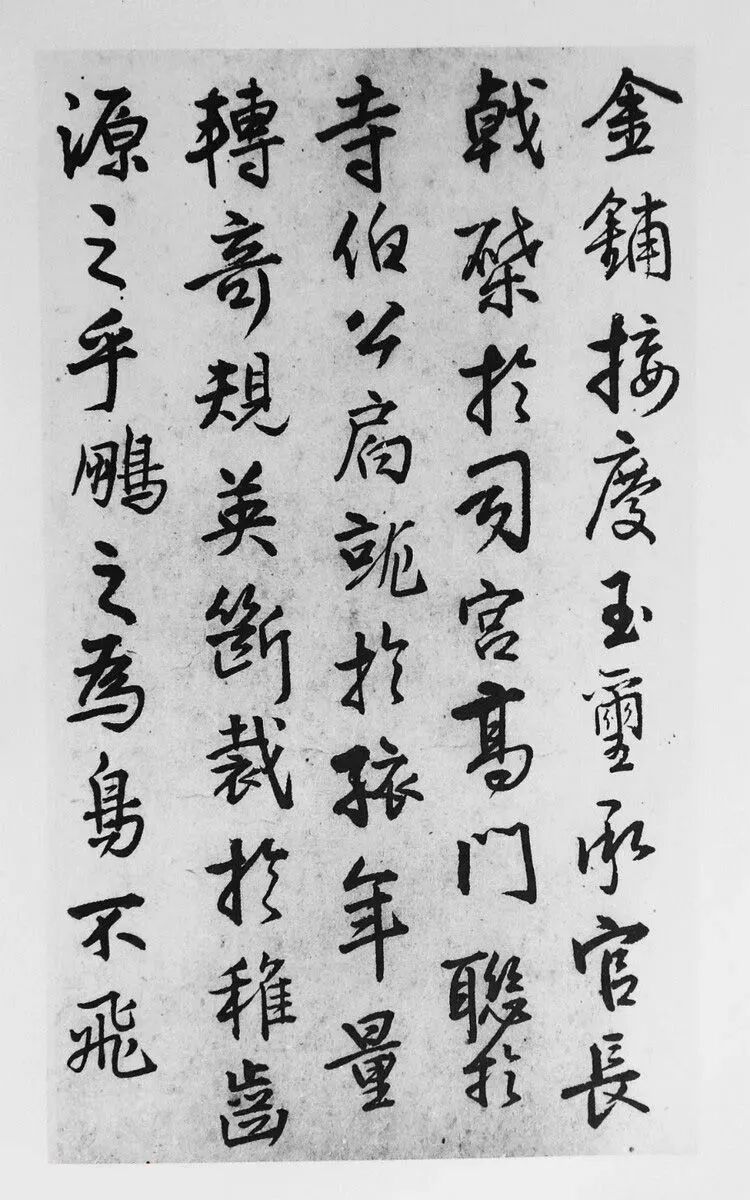 金鋪接慶玉璽承官長
戟磔於司宮高門聯於
寺伯公局就於孩年量
轉奇規英斷裁於稚齒
源之乎鵬之為鳥不飛